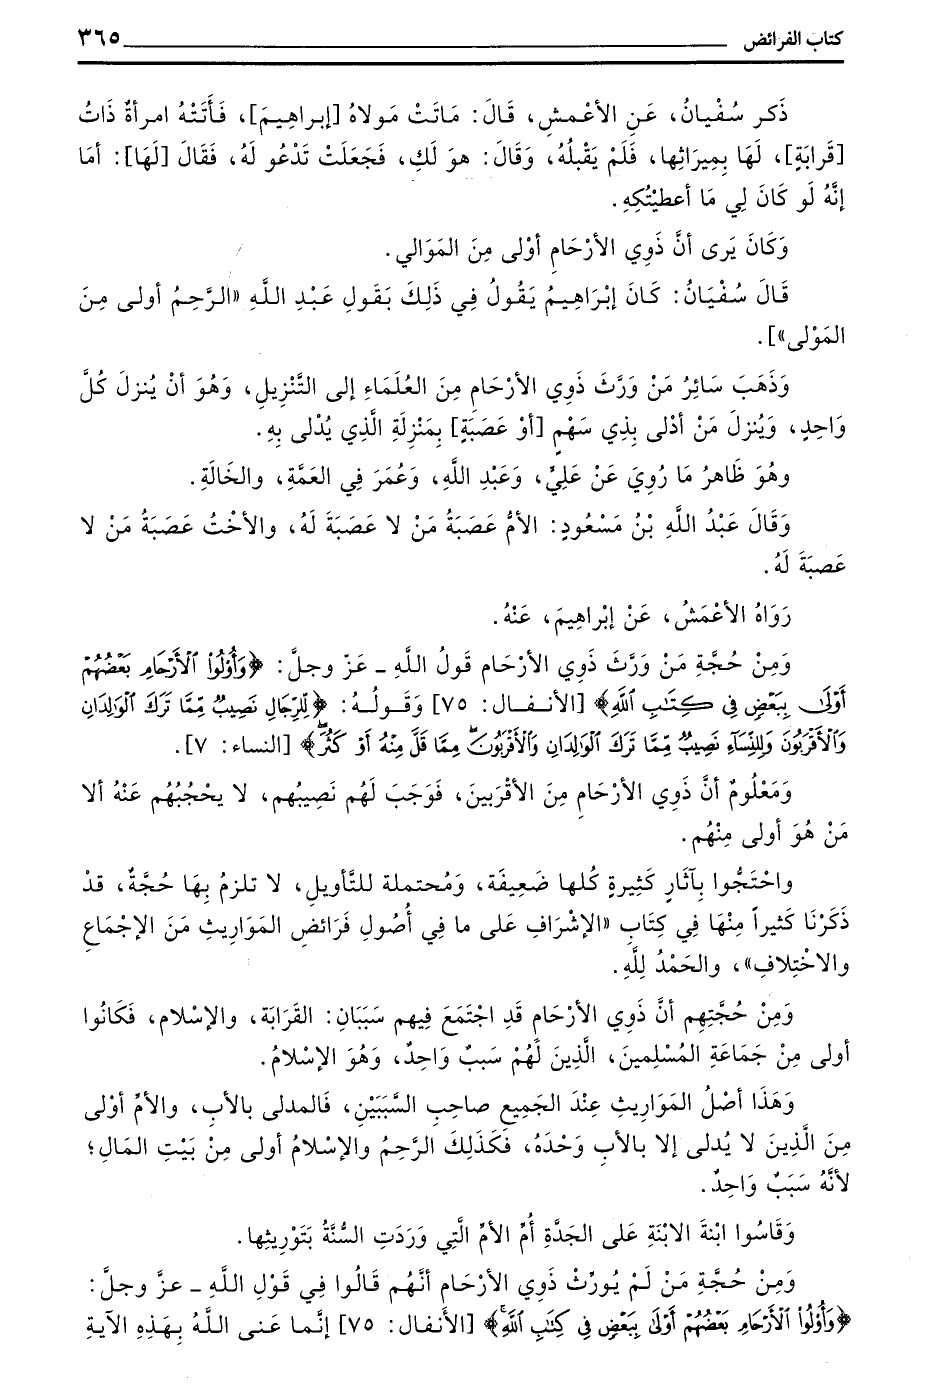 كتاب الفرائض ٣٦٥
ذَكر سُفْيانُ، عَنِ الأعْمشِ، قَالَ: مَاتَتْ مَولاةُ [إبراهِيمَ]، فَأَتَتْهُ امرأةٌ ذَاتُ
[قَرابَةٍ]، لَهَا بِمِيرَاثِها، فَلَمْ يَقْبلْهُ، وَقَالَ: هوَ لَكِ، فَجَعَلَتْ تَدْعُو لَهُ، فَقَالَ [لَهَا]: أمَا
إنَّهُ لَو كَانَ لِي مَا أعطيْتُكِهِ.
وَكَانَ يَرى أنَّ ذَوِي الأرْحَامِ أوْلى مِنَ المَوَالي.
قَالَ سُفْيَانُ: كَانَ إبْرَاهِيمُ يَقُولُ فِي ذَلِكَ بَقَولِ عَبْدِ اللَّهِ «الرَّحِمُ أولى مِنَ
المَوْلى»].
وَذَهَبَ سَائِرُ مَنْ وَرَّثَ ذَوِي الأرْحَامِ مِنَ العُلَمَاءِ إلى التَّنْزِيلِ، وَهُوَ أنْ يُنزلَ كُلَّ
وَاحِدٍ، وَيُنزلَ مَنْ أدْلى بِذِي سَهْمٍ [أوْ عَصَبَةٍ] بِمَنْزِلَةِ الَّذِي يُدْلى بِهِ.
وهُوَ ظَاهرُ مَا رُوِيَ عَنْ عَلِيٍّ، وَعَبْدِ اللَّهِ، وَعُمَرَ فِي العَمَّةِ، والخَالَةِ.
وَقَالَ عَبْدُ اللَّهِ بْنُ مَسْعُودٍ: الأمُّ عَصَبَةُ مَنْ لا عَصَبَةَ لَهُ، والأخْتُ عَصَبَةُ مَنْ لا
عَصبَةَ لَهُ.
رَوَاهُ الأعْمَشُ، عَنْ إبْراهِيمَ، عَنْهُ.
وَمِنْ حُجَّةِ مَنْ وَرَّثَ ذَوِي الأرْحَامِ قَولُ اللَّهِ - عَزّ وجلَّ: ﴿وَأُوْلُواْ ٱلْأَرْحَامِ بَعْضُهُمْ
أَوْلَىٰ بِبَعْضٍ فِى كِتَٰبِ ٱللَّهِ﴾ [الأنفال: ٧٥] وَقَولُهُ: ﴿لِّلرِّجَالِ نَصِيبٌ مِّمَّا تَرَكَ ٱلْوَٰلِدَانِ
وَٱلْأَقْرَبُونَ وَلِلنِّسَآءِ نَصِيبٌ مِّمَّا تَرَكَ ٱلْوَٰلِدَانِ وَٱلْأَقْرَبُونَ مِمَّا قَلَّ مِنْهُ أَوْ كَثُرَ﴾ [النساء: ٧].
وَمَعْلُومٌ أنَّ ذَوِي الأرْحَامِ مِنَ الأقْرَبينَ، فَوَجَبَ لَهُم نَصِيبُهم، لا يحْجُبُهُم عَنْهُ ألا
مَنْ هُوَ أولى مِنْهُم.
واحْتَجُّوا بِآثارٍ كَثِيرةٍ كُلها ضَعِيفَة، وَمُحتملة للتَّأويلِ، لا تلزمُ بِهَا حُجَّةٌ، قدْ
ذَكَرْنَا كَثيراً مِنْهَا فِي كِتَابِ «الإشْرَافِ عَلى ما فِي أُصُولِ فَرَائضِ المَوَاريثِ مَنَ الإجْمَاعِ
والاخْتِلافِ»، والحَمْدُ لِلَّهِ.
وَمِنْ حُجَّتِهِم أنَّ ذَوِي الأرْحَامِ قَدِ اجْتَمَعَ فِيهم سَبَبَانِ: القَرَابَة، والإسْلام، فَكَانُوا
أولى مِنْ جَمَاعَةِ المُسْلِمينَ، الَّذِينَ لَهُمْ سَببٌ وَاحِدٌ، وَهُوَ الإسْلامُ.
وَهَذَا أصْلُ المَوَاريثِ عِنْدَ الجَميعِ صاحِبِ السَّبَبَيْنِ، فَالمدلى بالأبِ، والأمِّ أوْلى
مِنَ الَّذِينَ لا يُدلى إلا بالأبِ وَحْدَهُ، فَكَذَلِكَ الرَّحِمُ والإسْلامُ أولى مِنْ بَيْتِ المَالِ؛
لأنَّهُ سَبَبٌ وَاحِدٌ.
وَقَاسُوا ابْنَةَ الابْنَةِ عَلى الجَدَّةِ أُمِّ الأمِّ الَّتِي وَرَدَتِ السُّنَّةُ بَتَوْريثِها.
وَمِنْ حُجَّةِ مَنْ لَمْ يُورِّثْ ذَوِي الأرْحَامِ أنَّهُم قَالُوا فِي قَوْلِ اللَّهِ - عزَّ وجلَّ:
﴿وَأُوْلُواْ ٱلْأَرْحَامِ بَعْضُهُمْ أَوْلَىٰ بِبَعْضٍ فِى كِتَٰبِ ٱللَّهِ﴾ [الأَنفال: ٧٥] إنَّما عَنى اللَّهُ بِهَذِهِ الآيةِ